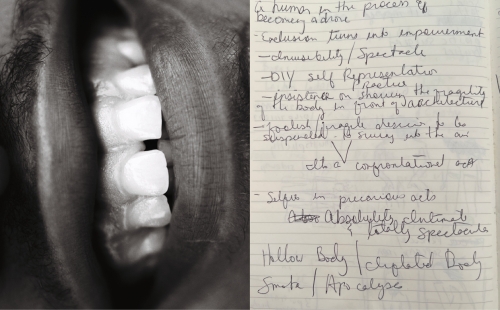 a human in the process of
becoming a drone
- Exclusion turns into empowerment
- Invisibility / Spectacle
- DIY Self Representation
Practice
- insistence on showing the fragility
of the body in front of architecture
- foolish / fragile desire to be
suspended - to swing into the air
Its a confrontational act
- Selfies in precarious acts
Absolutely intimate
& totally spectacular
Hollow Body / Depleted Body
Smoke / Apocalypse